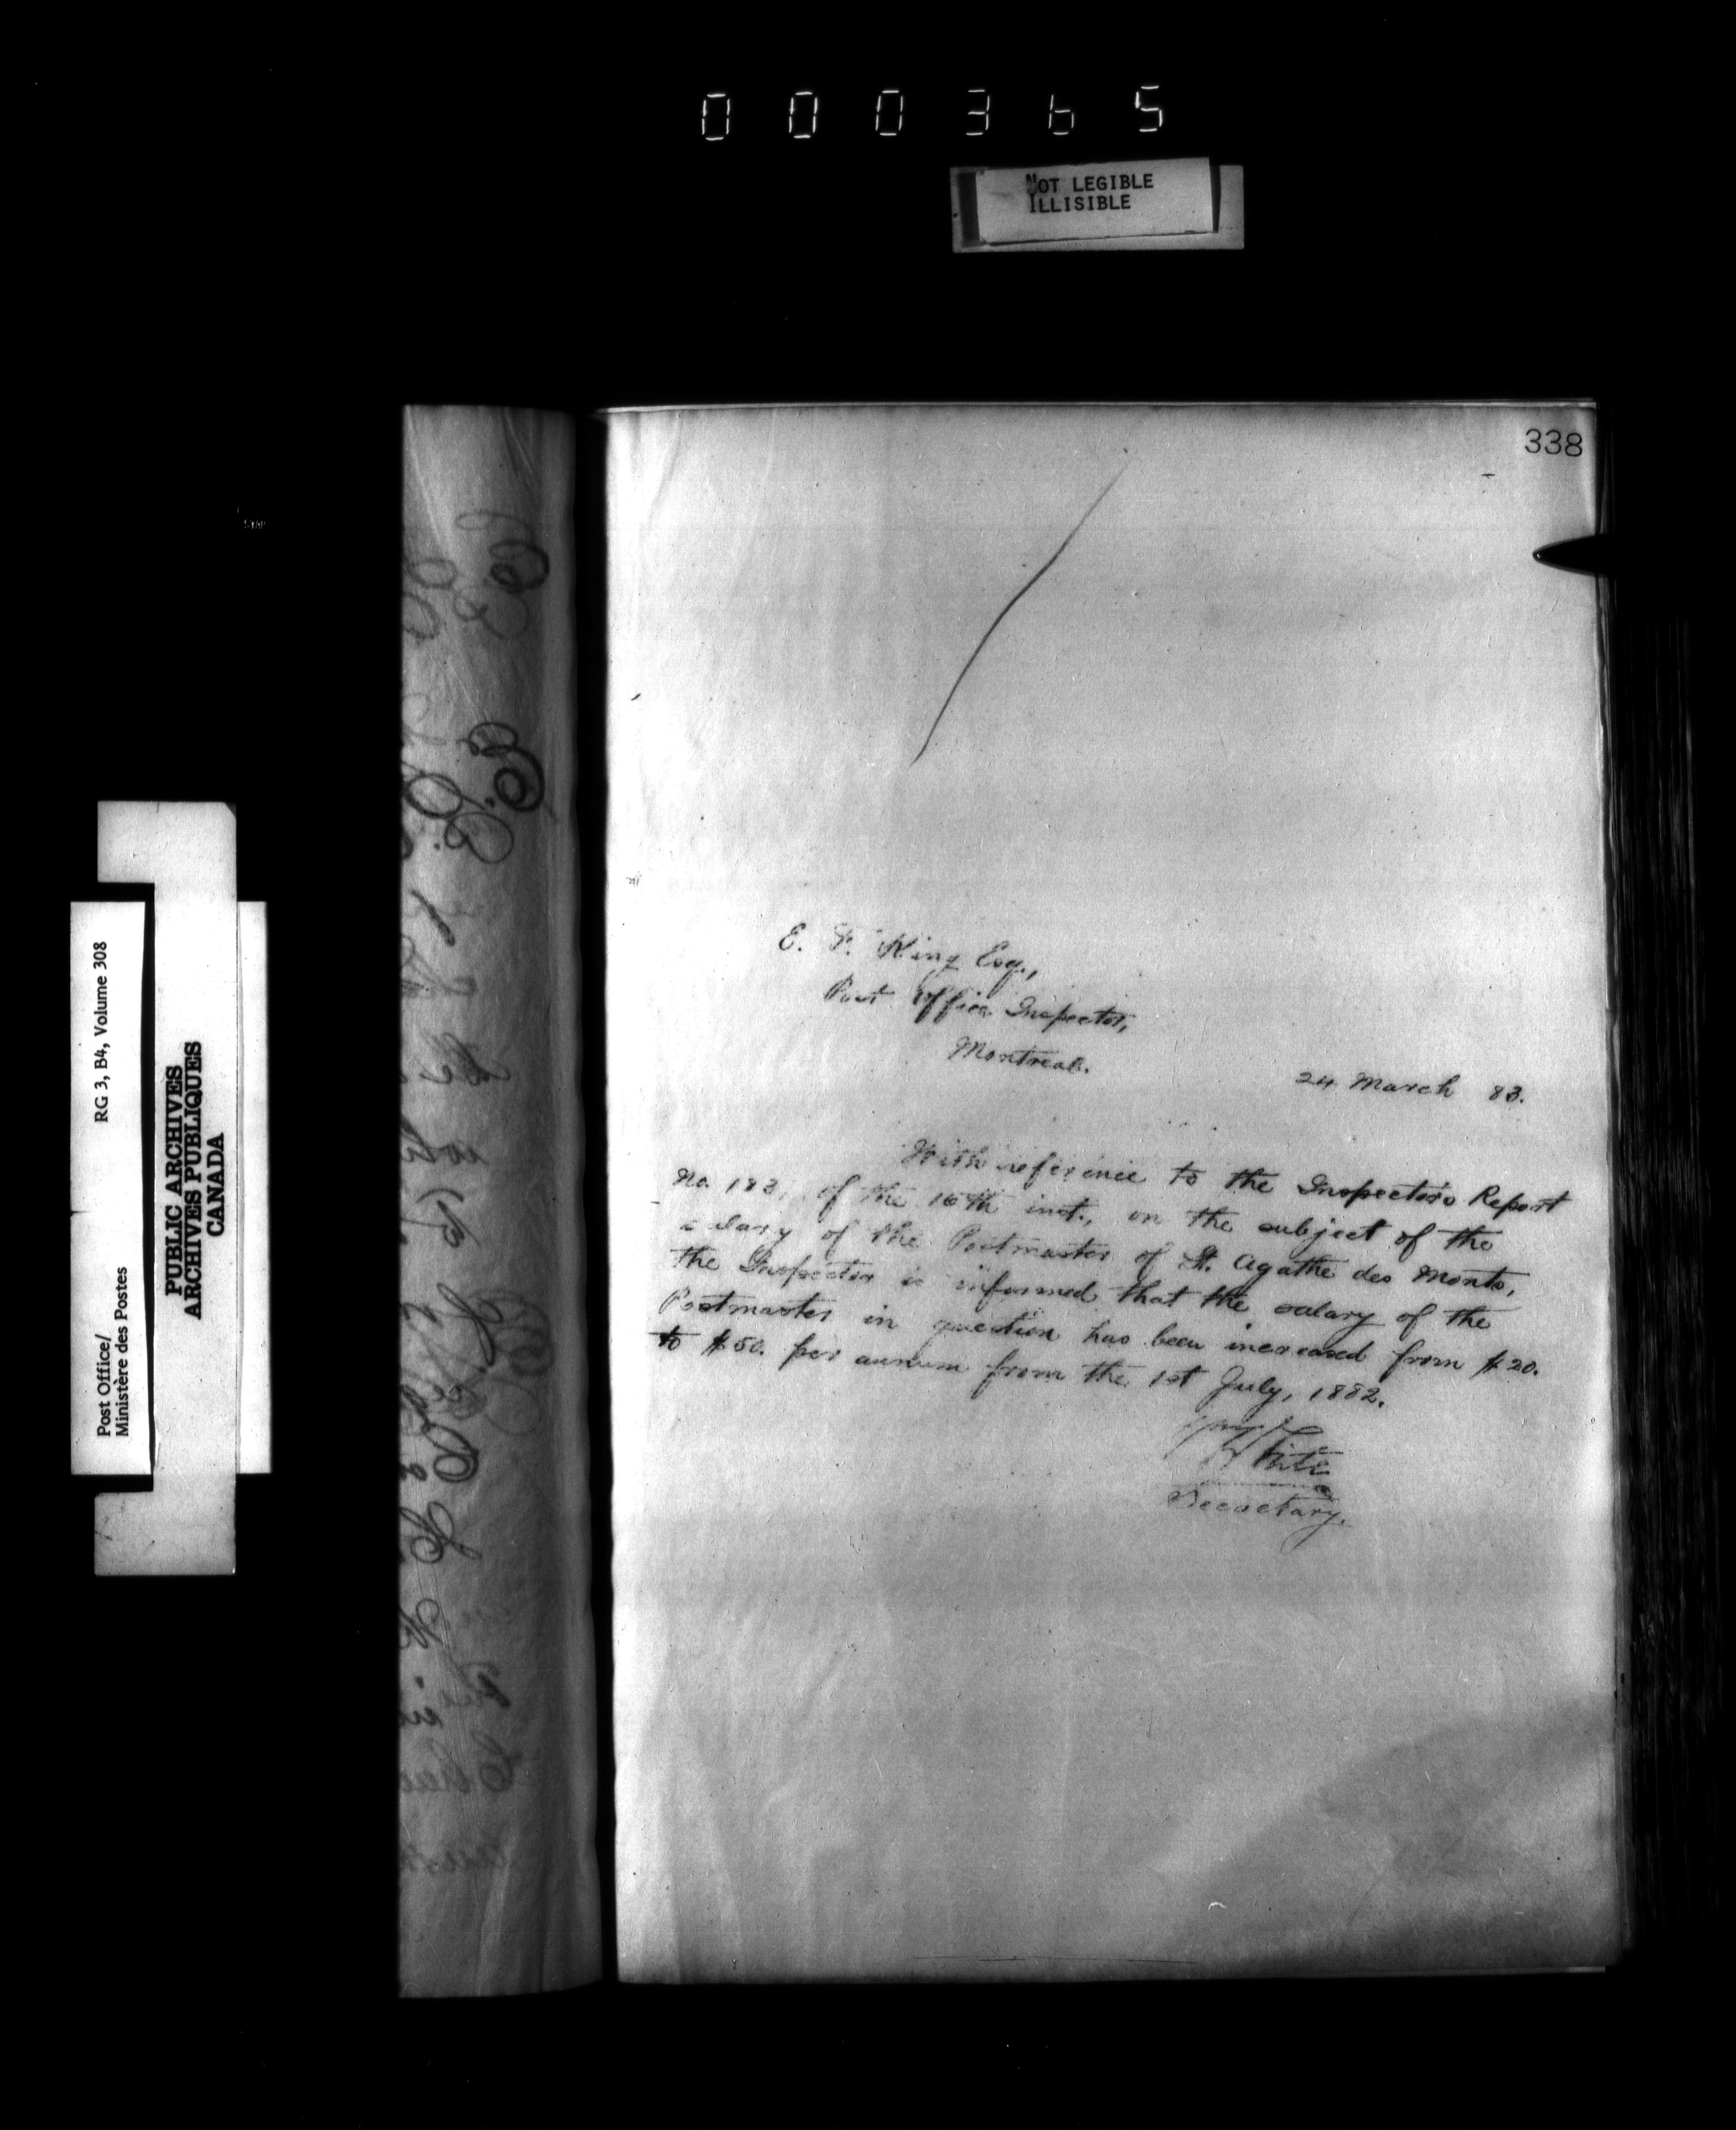 000365
NOT LEGIBLE
ILLISIBLE
338
E. F. King Esq.,
Post Office Inspector,
Montreal.
24 March 83.
With reference to the Inspector's Report
No. 183, of the 16th inst., on the subject of the
salary of the Postmaster of St. Agathe des Monts,
the Inspector is informed that the salary of the
Postmaster in question has been increased from $20.
to $50. per annum from the 1st July, 1882.
White
Secretary.
Post Office/
Ministère des Postes
RG 3, B4, Volume 308
PUBLIC ARCHIVES
ARCHIVES PUBLIQUES
CANADA